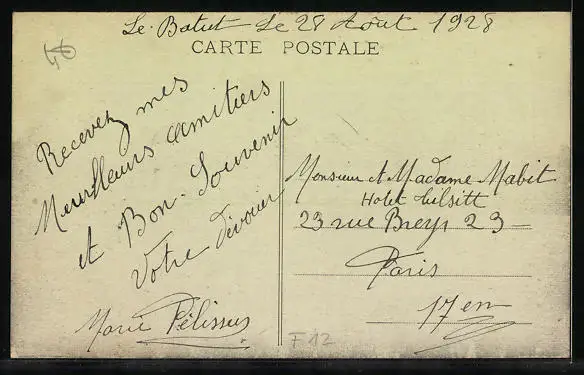 Le Batut Le 28 Août 1928
CARTE POSTALE
Recevez mes
Meuilleurs amitiers
et Bon Souvenir
Votre Dévouer
Marie Pélissus
Monsieur et Madame Mabit
Hotel Tulsitt
23 rue Breys 23
Paris
17 em
F12